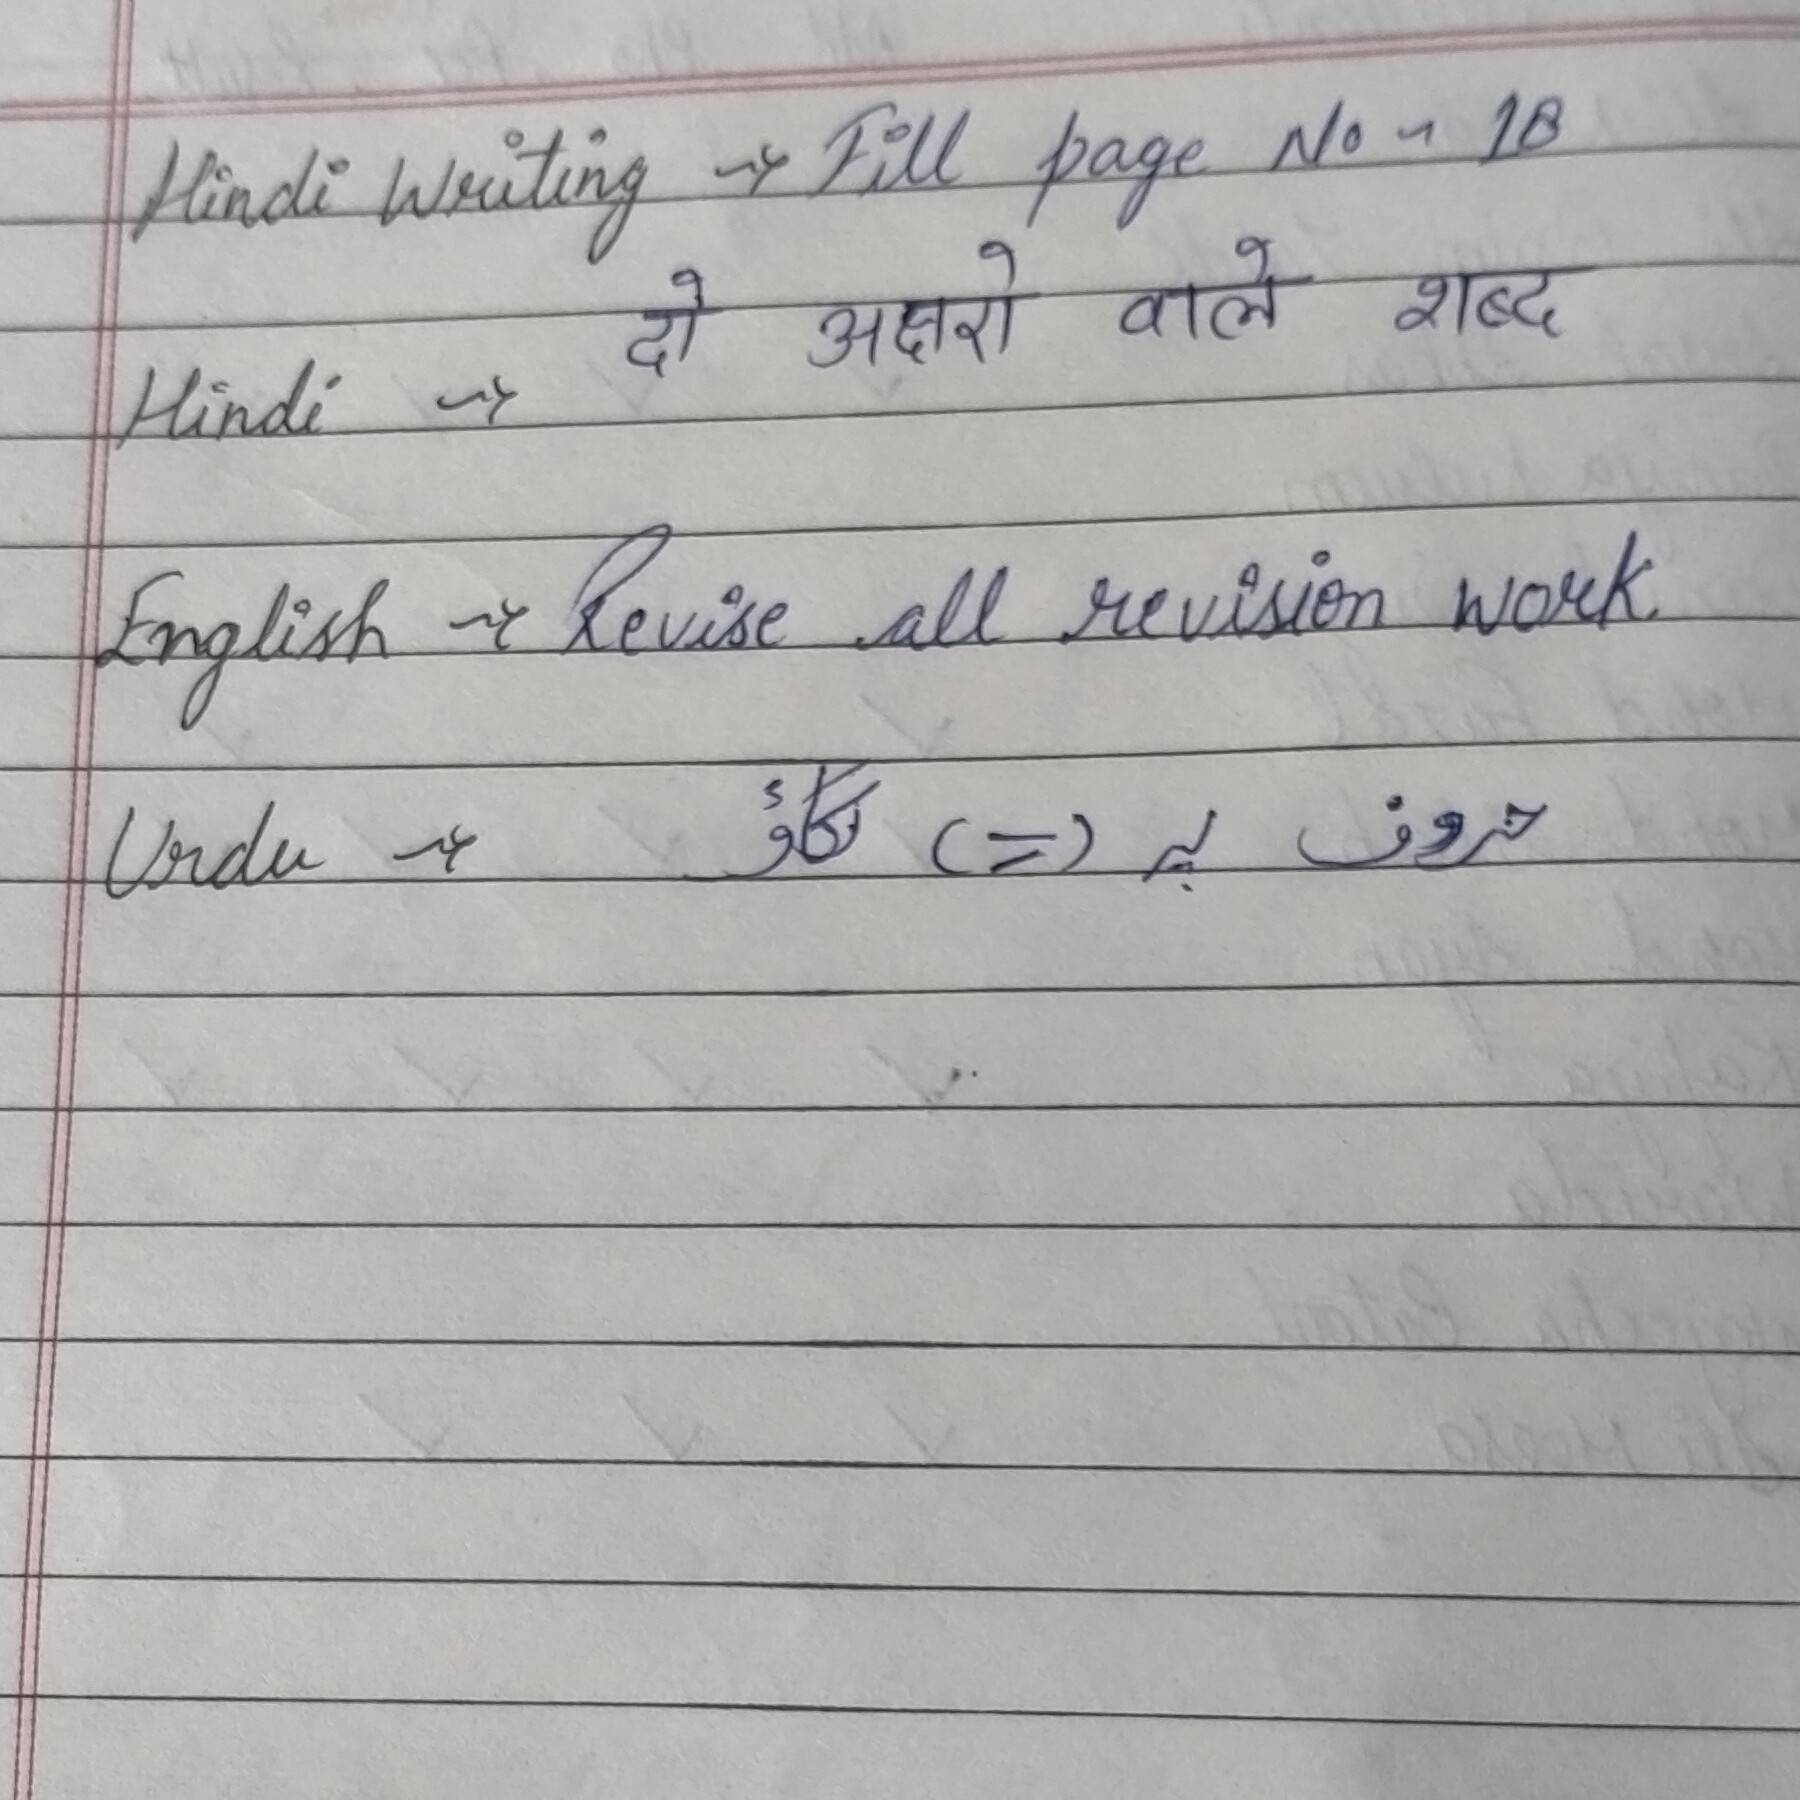 Hindi Writing → Fill page No - 18
दो अक्षरो वाले शब्द
Hindi →
English → Revise all revision work.
Urdu → حروف پر (=) لگاؤ